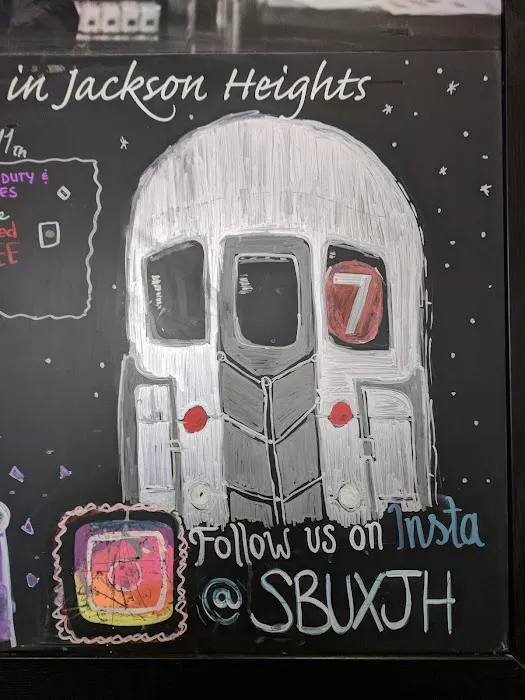 in Jackson Heights
11TH
DUTY &
7
Follow us on Insta
@SBUXJH